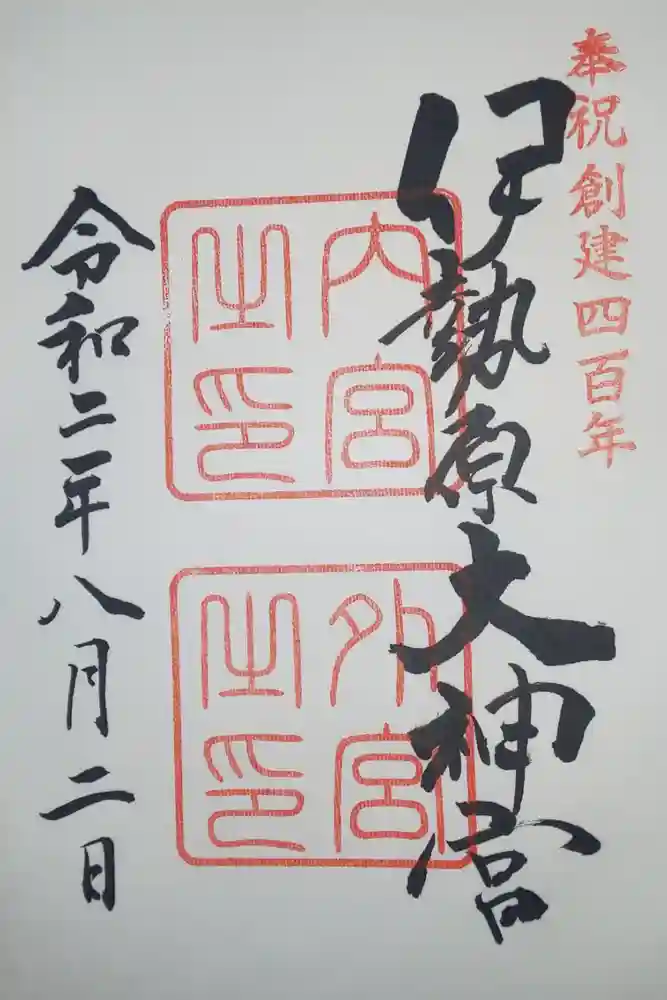 奉祝創建四百年
伊勢原大神宮
内宮
之印
外宮
之印
令和二年八月二日